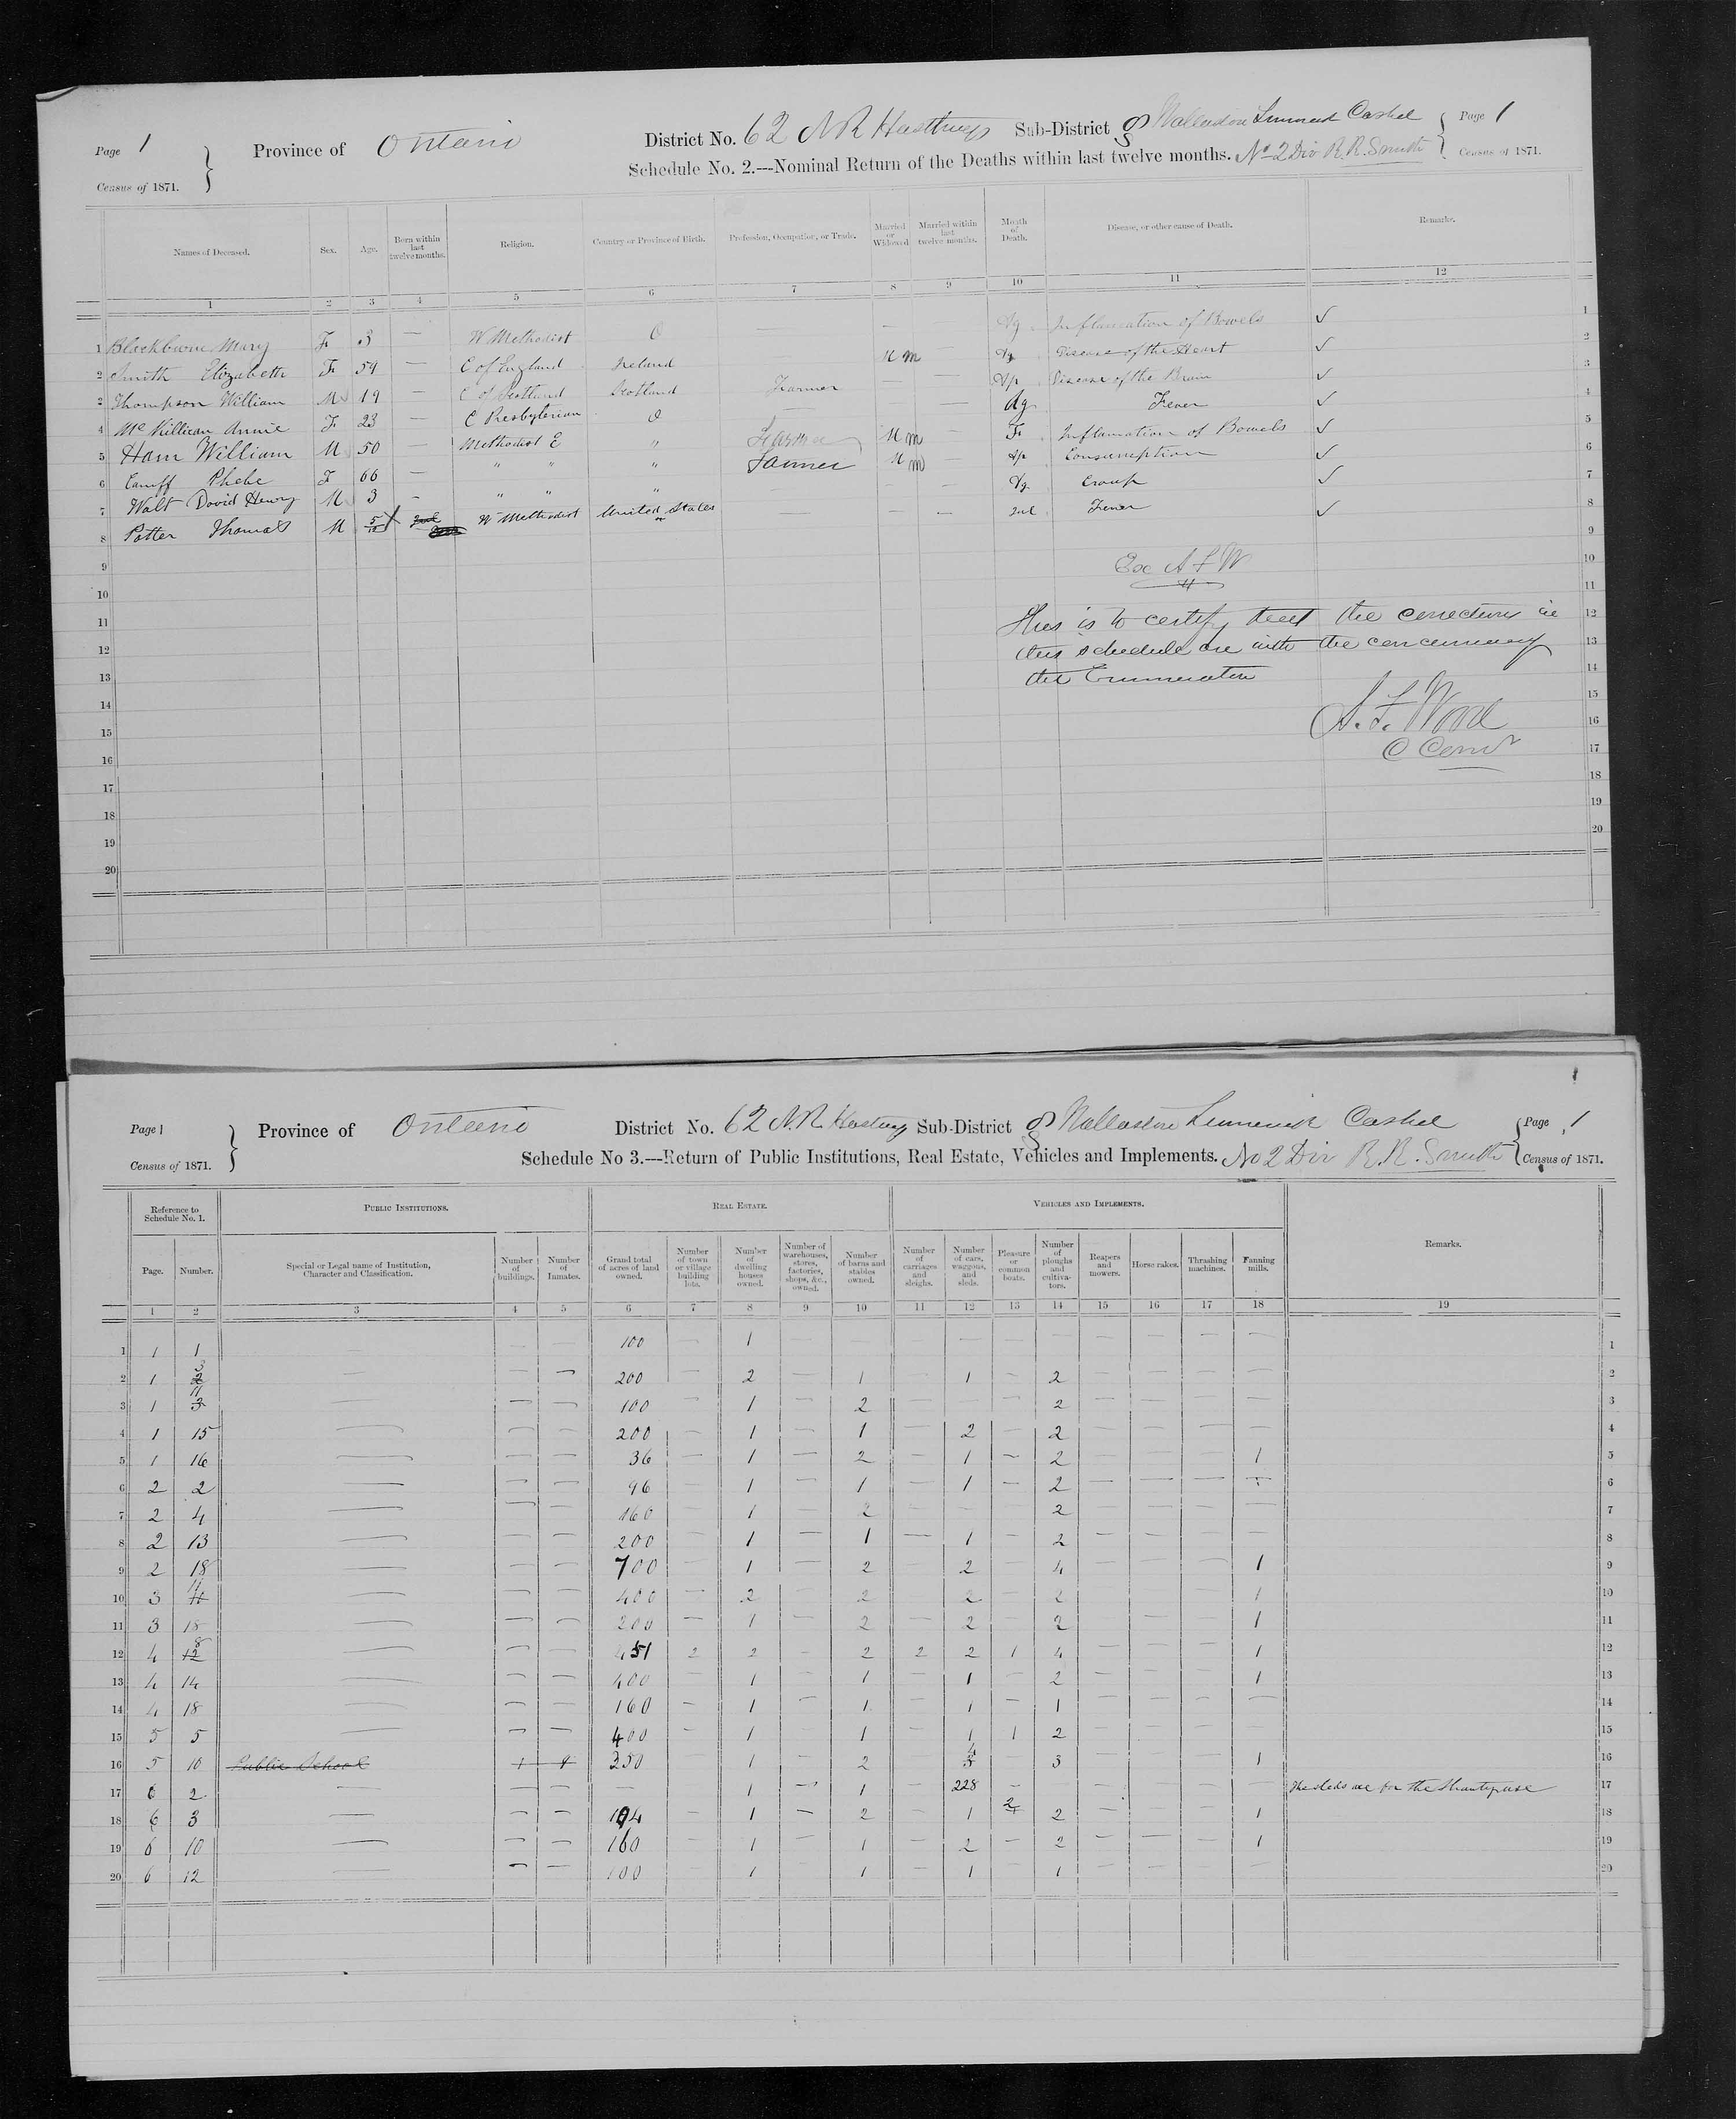 Page 1
Census of 1871.
Province of Ontario
District No. 62 N R Hastings Sub-District g Wollaston Limerick Cashel
Page 1
Census of 1871.
Schedule No. 2.—Nominal Return of the Deaths within last twelve months. No 2 Div R. R. Smith
Names of Deceased. Sex. Age. Born within last twelve months. Religion. Country or Province of Birth. Profession, Occupation, or Trade. Married or Widowed Married within last twelve months. Month of Death. Disease, or other cause of Death. Remarks.
1 2 3 4 5 6 7 8 9 10 11 12
1 Blackburn Mary F 3 — W Methodist O — — Inflamation of Bowels ✓ 1
2 Smith Elizabeth F 54 — C of England Ireland M — Disease of the Heart ✓ 2
2 Thompson William M 19 — C of Scotland Scotland Farmer — — Ap Disease of the Brain ✓ 3
4 McKillican Annie F 23 — C Presbyterian O — — — Ag Fever ✓ 4
5 Ham William M 50 — Methodist E " Farmer M — F Inflamation of Bowels ✓ 5
6 Phebe F 66 — " " " Farmer M — Ap Consumption ✓ 6
7 Walt David Henry M 3 - " " " — — — Croup ✓ 7
8 Potter Thomas M 5/12 W Methodist United States — — — Jul Fever ✓ 8
9 9
10 10
11 11
12 12
13 13
14 14
15 15
16 16
17 17
18 18
19 19
20 20
Exc A F W
This is to certify that the corrections in
this schedule are with the concurrence of
the Enumerator
A. F. Wood
C Comr
1
Page 1
Census of 1871.
Province of Ontario
District No. 62 N. R. Hastings Sub-District g Wollaston Limerick Cashel
Page 1
Census of 1871.
Schedule No 3.—Return of Public Institutions, Real Estate, Vehicles and Implements. No 2 Div R. R. Smith
Reference to Schedule No. 1. Public Institutions. Real Estate. Vehicles and Implements. Remarks.
Page. Number. Special or Legal name of Institution, Character and Classification. Number of buildings. Number of Inmates. Grand total of acres of land owned. Number of town or village building lots. Number of dwelling houses owned. Number of warehouses, stores, factories, shops, &c., owned. Number of barns and stables owned. Number of carriages and sleighs. Number of cars, waggons, and sleds. Pleasure or common boats. Number of ploughs and cultivators. Reapers and mowers. Horse rakes. Thrashing machines. Fanning mills.
1 2 3 4 5 6 7 8 9 10 11 12 13 14 15 16 17 18 19
1 1 1 — — — 100 — 1 — — — — — — — — — — 1
2 1 3 — — — 200 — 2 — 1 — 1 — 2 — — — — 2
3 1 11 — — — 100 — 1 — 2 — — — 2 — — — — 3
4 1 15 — — — 200 — 1 — 1 — 2 — 2 — — — — 4
5 1 16 — — — 36 — 1 — 2 — 1 — 2 — — — 1 5
6 2 2 — — — 96 — 1 — 1 — 1 — 2 — — — — 6
7 2 4 — — — 160 — 1 — 2 — — — 2 — — — — 7
8 2 13 — — — 200 — 1 — 1 — 1 — 2 — — — — 8
9 2 18 — — — 700 — 1 — 2 — 2 — 4 — — — 1 9
10 3 11 — — — 400 — 2 — 2 — 2 — 2 — — — 1 10
11 3 18 — — — 200 — 1 — 2 — 2 — 2 — — — 1 11
12 4 8 — — — 451 2 2 — 2 2 2 1 4 — — — 1 12
13 4 14 — — — 400 — 1 — 1 — 1 — 2 — — — 1 13
14 4 18 — — — 160 — 1 — 1 — 1 — 1 — — — — 14
15 5 5 — — — 400 — 1 — 1 — 1 1 2 — — — — 15
16 5 10 Public School 1 350 — 1 — 2 — 4 3 — — — 1 16
17 6 2 — — — — 1 — 1 — 228 — — — — — The sleds are for the Shanty use 17
18 6 3 — — — 194 — 1 — 2 — 1 2 2 — — — 1 18
19 6 10 — — — 160 — 1 — 1 — 2 — 2 — — — 1 19
20 6 12 — — — 100 — 1 — 1 — 1 — 1 — — — — 20